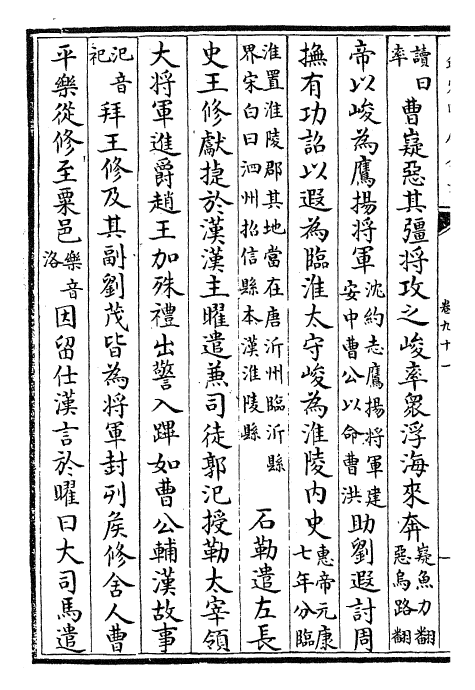 讀曰率曹嶷惡其彊將攻之峻率衆浮海來奔嶷魚力翻惡烏路翻
帝以峻為鷹揚將軍沈約志鷹揚將軍建安中曹公以命曹洪助劉遐討周
撫有功詔以遐為臨淮太守峻為淮陵内史惠帝元康七年分臨
淮置淮陵郡其地當在唐沂州臨沂縣界宋白曰泗州招信縣本漢淮陵縣 石勒遣左長
史王修獻捷於漢漢主曜遣兼司徒郭汜授勒太宰領
大將軍進爵趙王加殊禮出警入蹕如曹公輔漢故事
汜音祀拜王修及其副劉茂皆為將軍封列矦修舍人曹
平樂從修至粟邑樂音洛因留仕漢言於曜曰大司馬遣
卷九十一